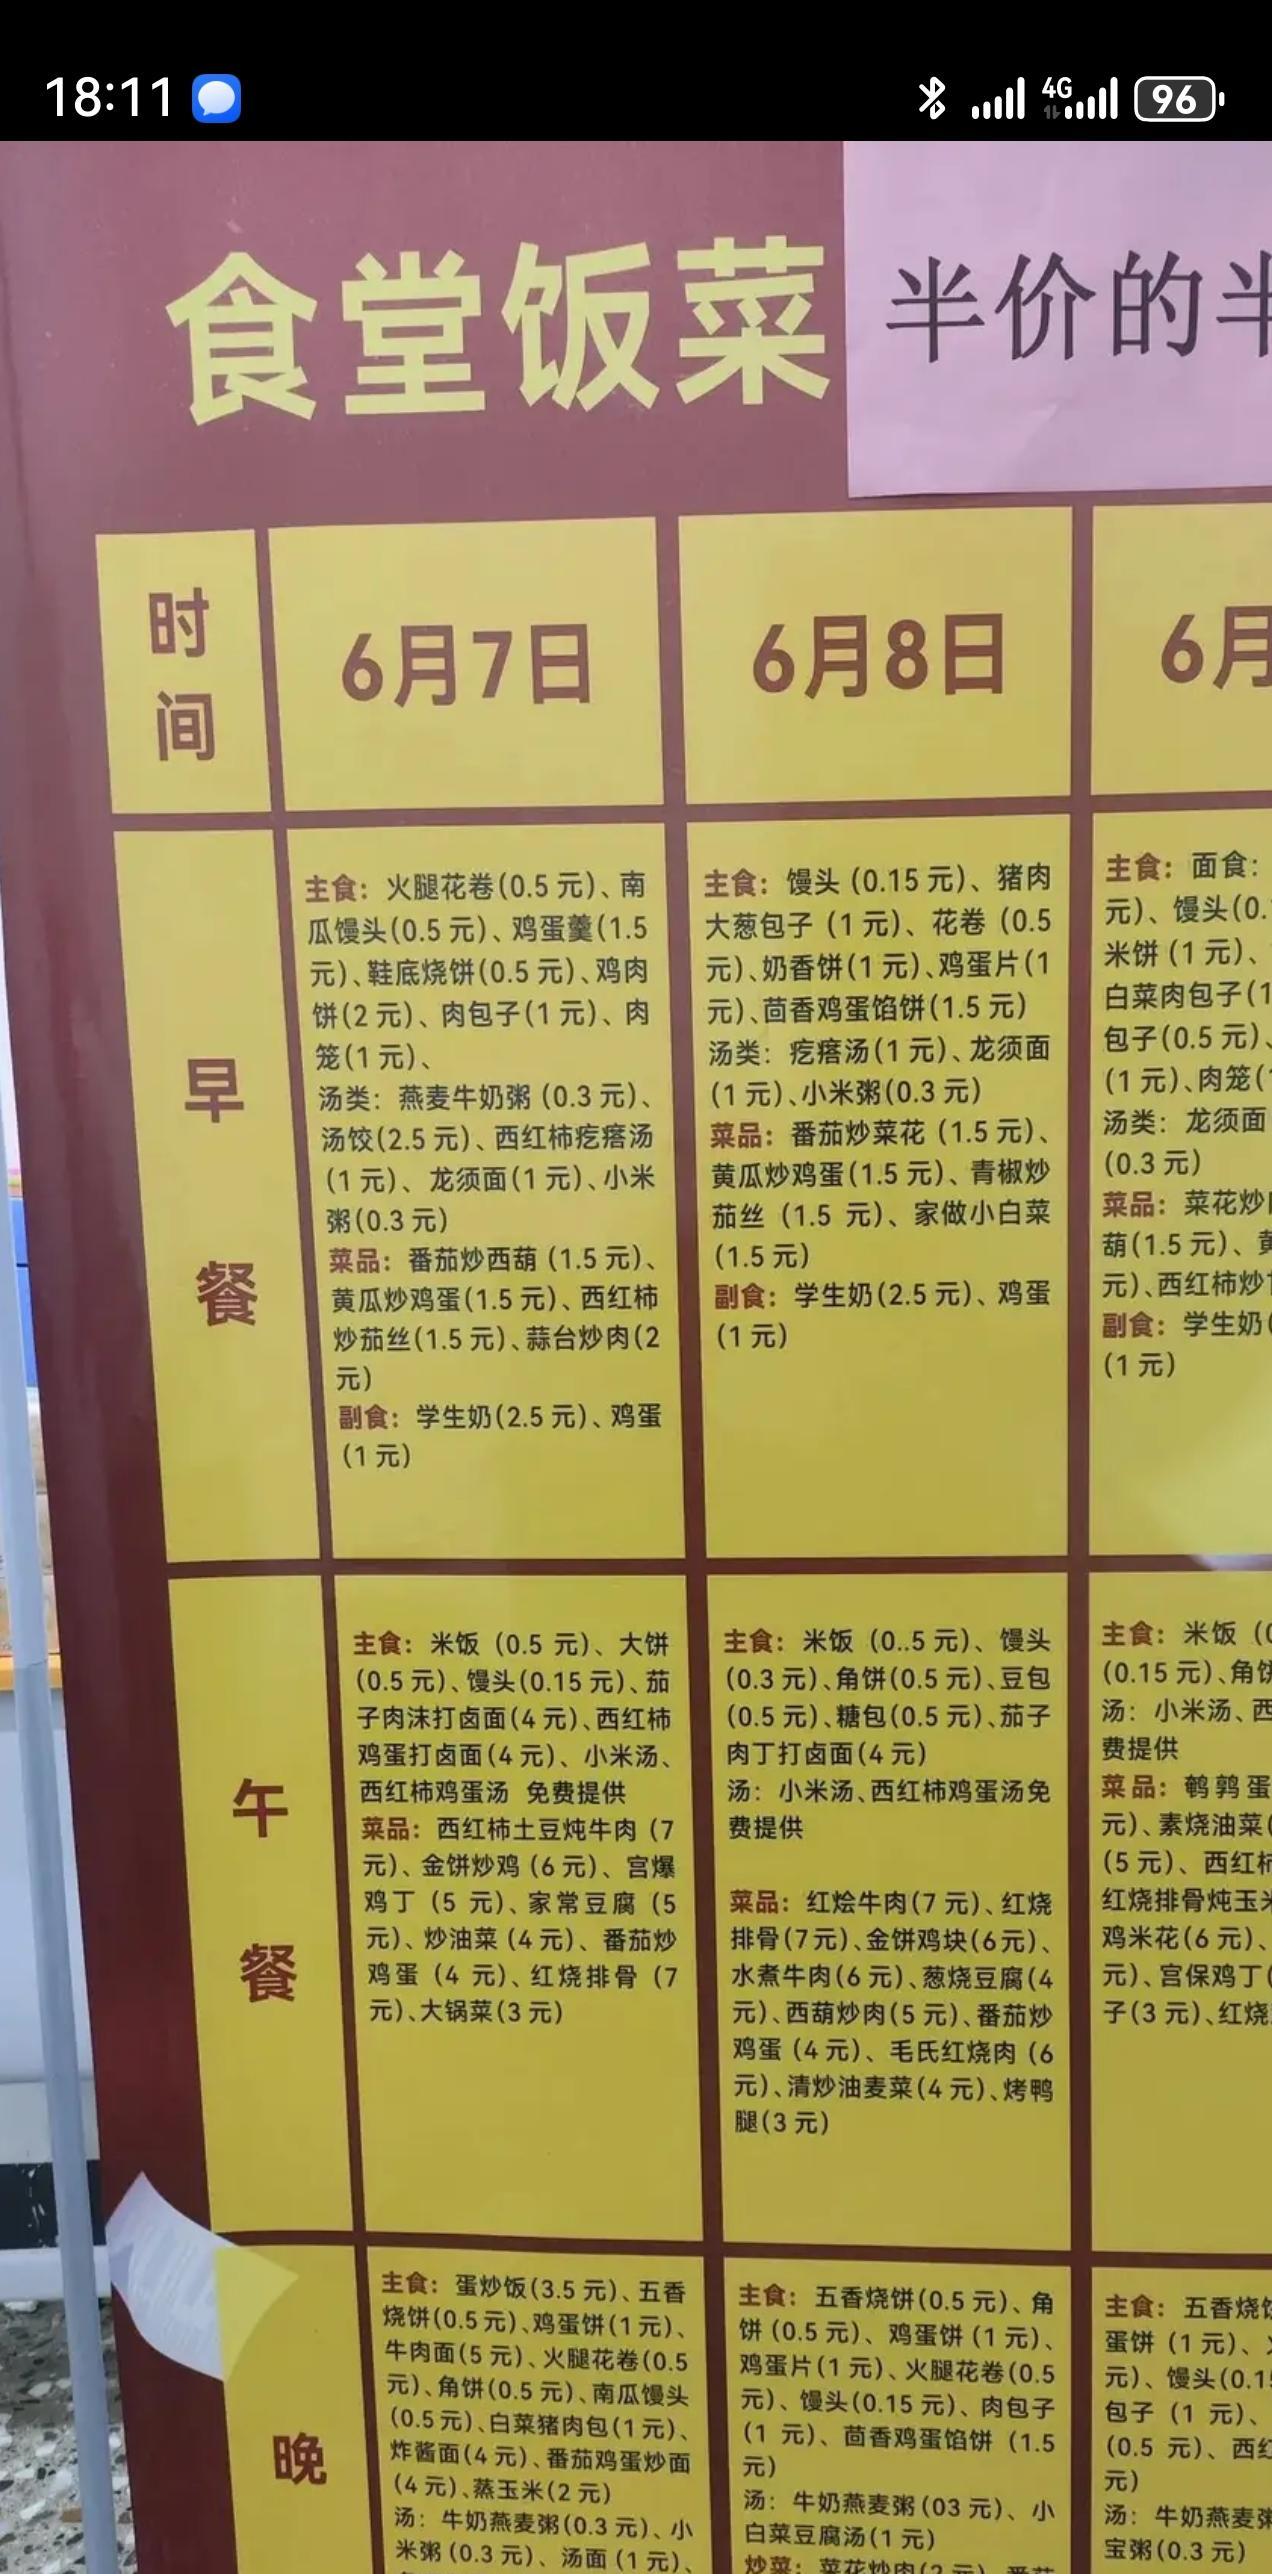 18:11
4G
96
食堂饭菜
半价的半
时间
6月7日
6月8日
6月
早餐
主食：火腿花卷(0.5 元)、南
瓜馒头(0.5 元)、鸡蛋羹(1.5
元)、鞋底烧饼(0.5 元)、鸡肉
饼(2 元)、肉包子(1 元)、肉
笼(1 元)、
汤类：燕麦牛奶粥 (0.3 元)、
汤饺(2.5 元)、西红柿疙瘩汤
(1 元)、龙须面(1 元)、小米
粥(0.3 元)
菜品：番茄炒西葫 (1.5 元)、
黄瓜炒鸡蛋(1.5 元)、西红柿
炒茄丝(1.5 元)、蒜台炒肉(2
元)
副食：学生奶(2.5 元)、鸡蛋
(1 元)
主食：馒头 (0.15 元)、猪肉
大葱包子 (1 元)、花卷 (0.5
元)、奶香饼(1 元)、鸡蛋片(1
元)、茴香鸡蛋馅饼(1.5 元)
汤类：疙瘩汤(1 元)、龙须面
(1 元)、小米粥(0.3 元)
菜品：番茄炒菜花 (1.5 元)、
黄瓜炒鸡蛋(1.5 元)、青椒炒
茄丝 (1.5 元)、家做小白菜
(1.5 元)
副食：学生奶(2.5 元)、鸡蛋
(1 元)
主食：面食：
元)、馒头(0.
米饼 (1 元)、
白菜肉包子(1
包子(0.5 元)、
(1 元)、肉笼(
汤类：龙须面
(0.3 元)
菜品：菜花炒
葫(1.5 元)、黄
元)、西红柿炒
副食：学生奶(
(1 元)
午餐
主食：米饭 (0.5 元)、大饼
(0.5 元)、馒头(0.15 元)、茄
子肉沫打卤面(4 元)、西红柿
鸡蛋打卤面(4 元)、小米汤、
西红柿鸡蛋汤 免费提供
菜品：西红柿土豆炖牛肉 (7
元)、金饼炒鸡 (6 元)、宫爆
鸡丁 (5 元)、家常豆腐 (5
元)、炒油菜 (4 元)、番茄炒
鸡蛋 (4 元)、红烧排骨 (7
元)、大锅菜(3 元)
主食：米饭 (0..5 元)、馒头
(0.3 元)、角饼(0.5 元)、豆包
(0.5 元)、糖包(0.5 元)、茄子
肉丁打卤面(4 元)
汤：小米汤、西红柿鸡蛋汤免
费提供
菜品：红烩牛肉(7 元)、红烧
排骨(7元)、金饼鸡块(6元)、
水煮牛肉(6 元)、葱烧豆腐(4
元)、西葫炒肉(5 元)、番茄炒
鸡蛋 (4 元)、毛氏红烧肉 (6
元)、清炒油麦菜(4 元)、烤鸭
腿(3 元)
主食：米饭 (0
(0.15 元)、角饼
汤：小米汤、西
费提供
菜品：鹌鹑蛋
元)、素烧油菜(
(5 元)、西红柿
红烧排骨炖玉米
鸡米花(6 元)、
元)、宫保鸡丁(
子(3 元)、红烧
晚
主食：蛋炒饭(3.5 元)、五香
烧饼(0.5 元)、鸡蛋饼(1 元)、
牛肉面(5 元)、火腿花卷(0.5
元)、角饼(0.5 元)、南瓜馒头
(0.5 元)、白菜猪肉包(1 元)、
炸酱面(4 元)、番茄鸡蛋炒面
(4 元)、蒸玉米(2 元)
汤：牛奶燕麦粥(0.3 元)、小
米粥 (0.3 元)、汤面 (1 元)、
主食：五香烧饼(0.5 元)、角
饼 (0.5 元)、鸡蛋饼 (1 元)、
鸡蛋片(1 元)、火腿花卷(0.5
元)、馒头(0.15 元)、肉包子
(1 元)、茴香鸡蛋馅饼 (1.5
元)
汤：牛奶燕麦粥(03 元)、小
白菜豆腐汤(1 元)
炒菜：菜花炒肉(2 元)、番茄
主食：五香烧饼
蛋饼 (1 元)、
元)、馒头(0.15
包子 (1 元)、
(0.5 元)、西红
元)
汤：牛奶燕麦粥
宝粥(0.3 元)